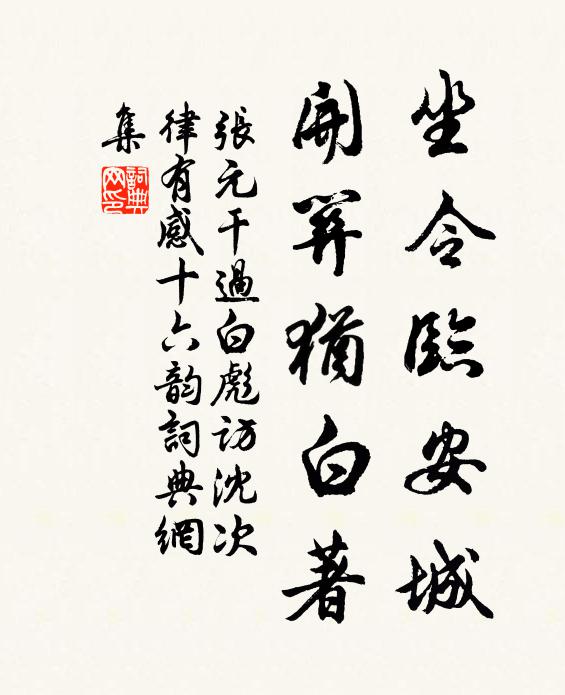 坐令臨安城
開猶白著
張元干過白彪訪沈次
律有感十六韵詞典網
集
詞典
网印